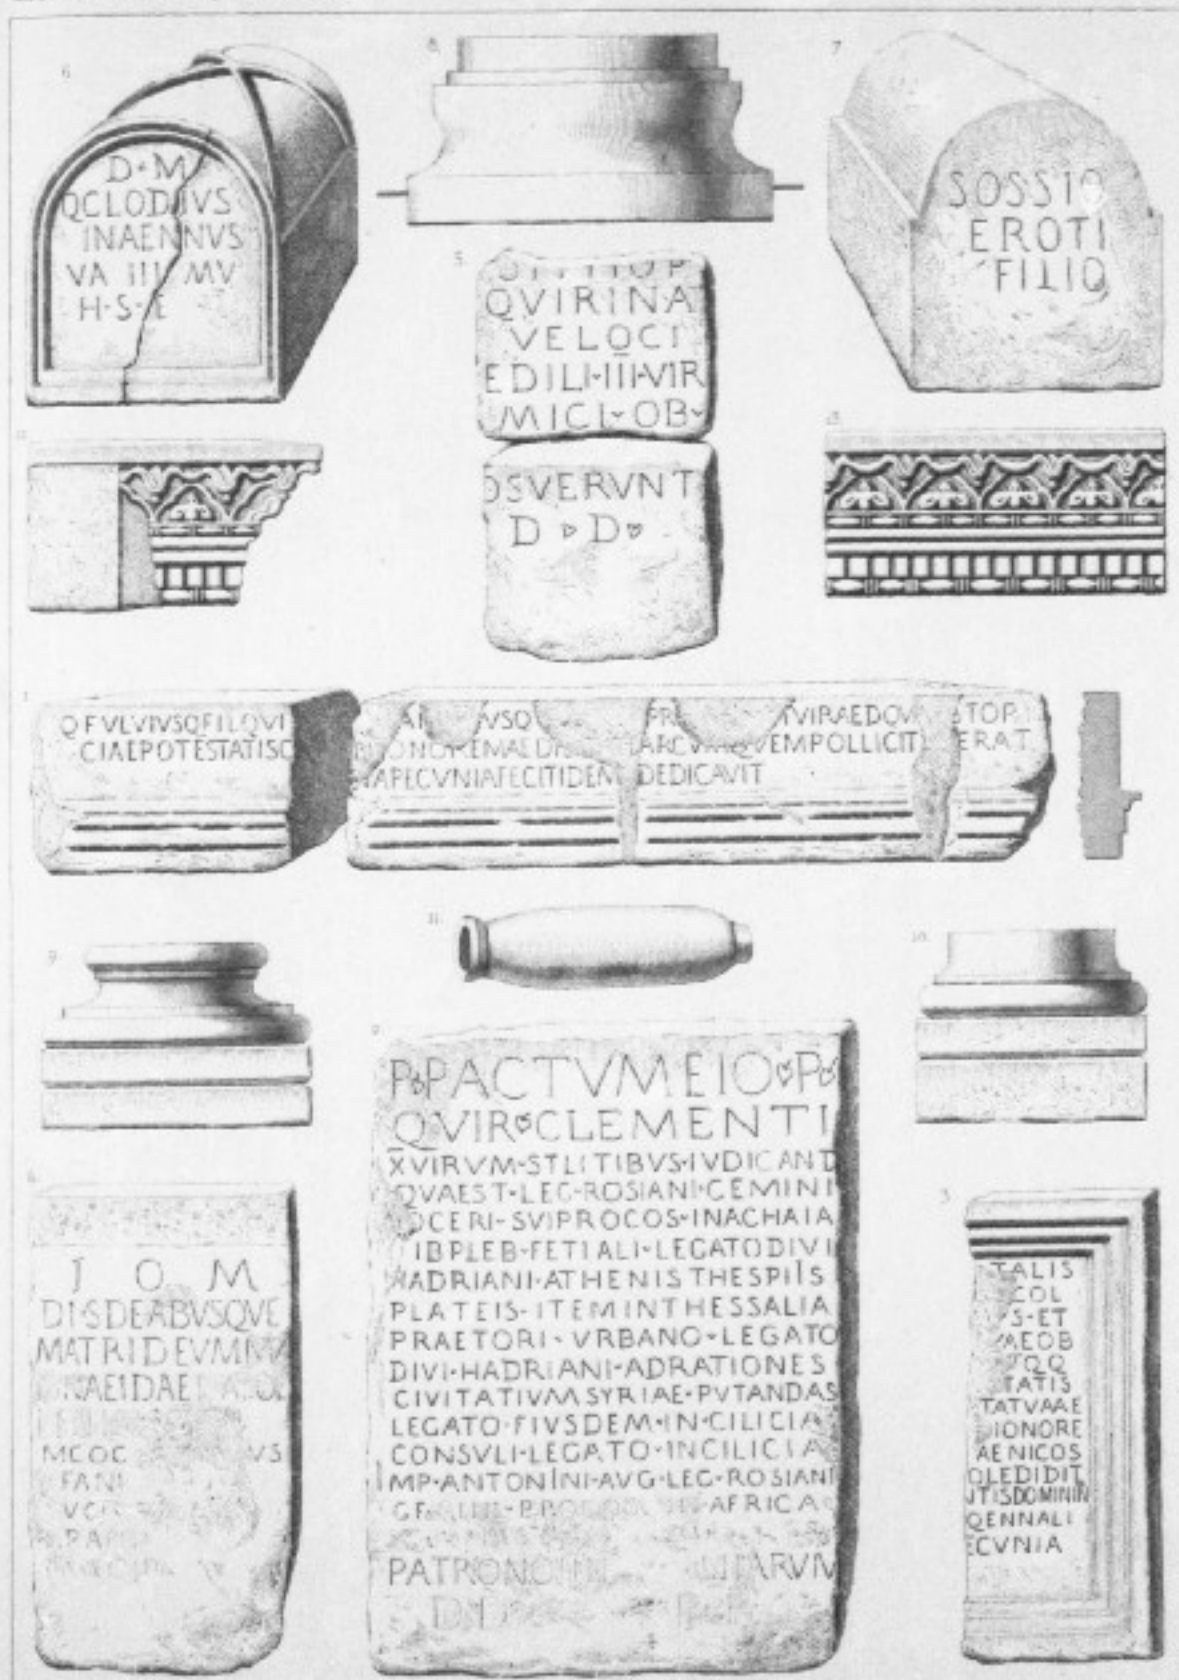 6.
D·M
QCLODIVS
INAENNVS
VA III MV
H·S·E
8.
7
SOSSIO
EROTI
FILIO
5.
QVIRINA
VELOCI
EDILI·III·VIR
MICI OB
OSVERVNT
D D
12
13
1
QFVLVIVSQFILQVI
CIALPOTESTATIS
VIRAED
HONOREMAED ARCVM QVEMPOLLICIT ERAT
APECVNIAFECITIDEM DEDICAVIT
9.
11.
10.
2
P PACTVMEIO P
QVIR CLEMENTI
XVIRVM·STLITIBVS·IVDICAND
QVAEST·LEG·ROSIANI·GEMINI
OCERI·SVIPROCOS·INACHAIA
IBPLEB·FETIALI·LEGATODIVI
HADRIANI·ATHENISTHESPIIS
PLATEIS·ITEMINTHESSALIA
PRAETORI·VRBANO·LEGATO
DIVI·HADRIANI·ADRATIONES
CIVITATIVMSYRIAE·PVTANDAS
LEGATO·EIVSDEM·IN·CILICIA
CONSVLI·LEGATO·INCILICIA
IMP·ANTONINI·AVG·LEG·ROSIANI
AFRICA
PATRONO
4
I O M
DISDEABVSQVE
MATRIDEVMM
NAEIDAE
MCOC VS
FAN
3
TALIS
COL
S·ET
AEOB
TQQ
TATIS
TATVAAE
IONORE
AENICOS
OLEDIDIT
NTISDOMININ
QENNALI
ECVNIA